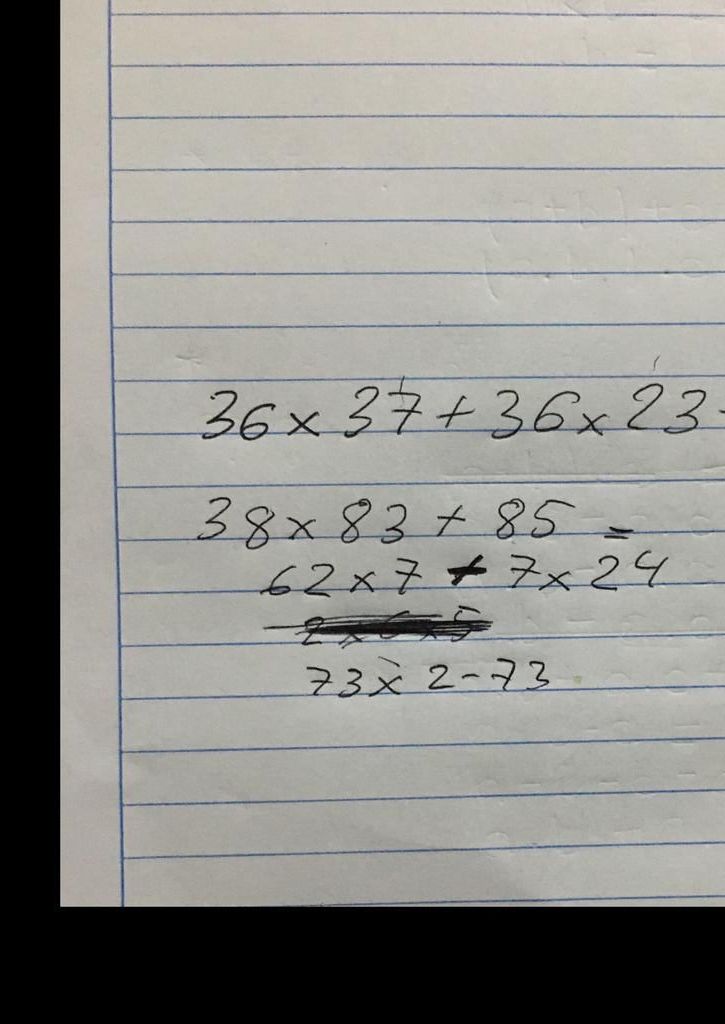 36 x 37 + 36 x 23
38 x 83 + 85 =
62 x 7 + 7 x 24
73 x 2 - 73